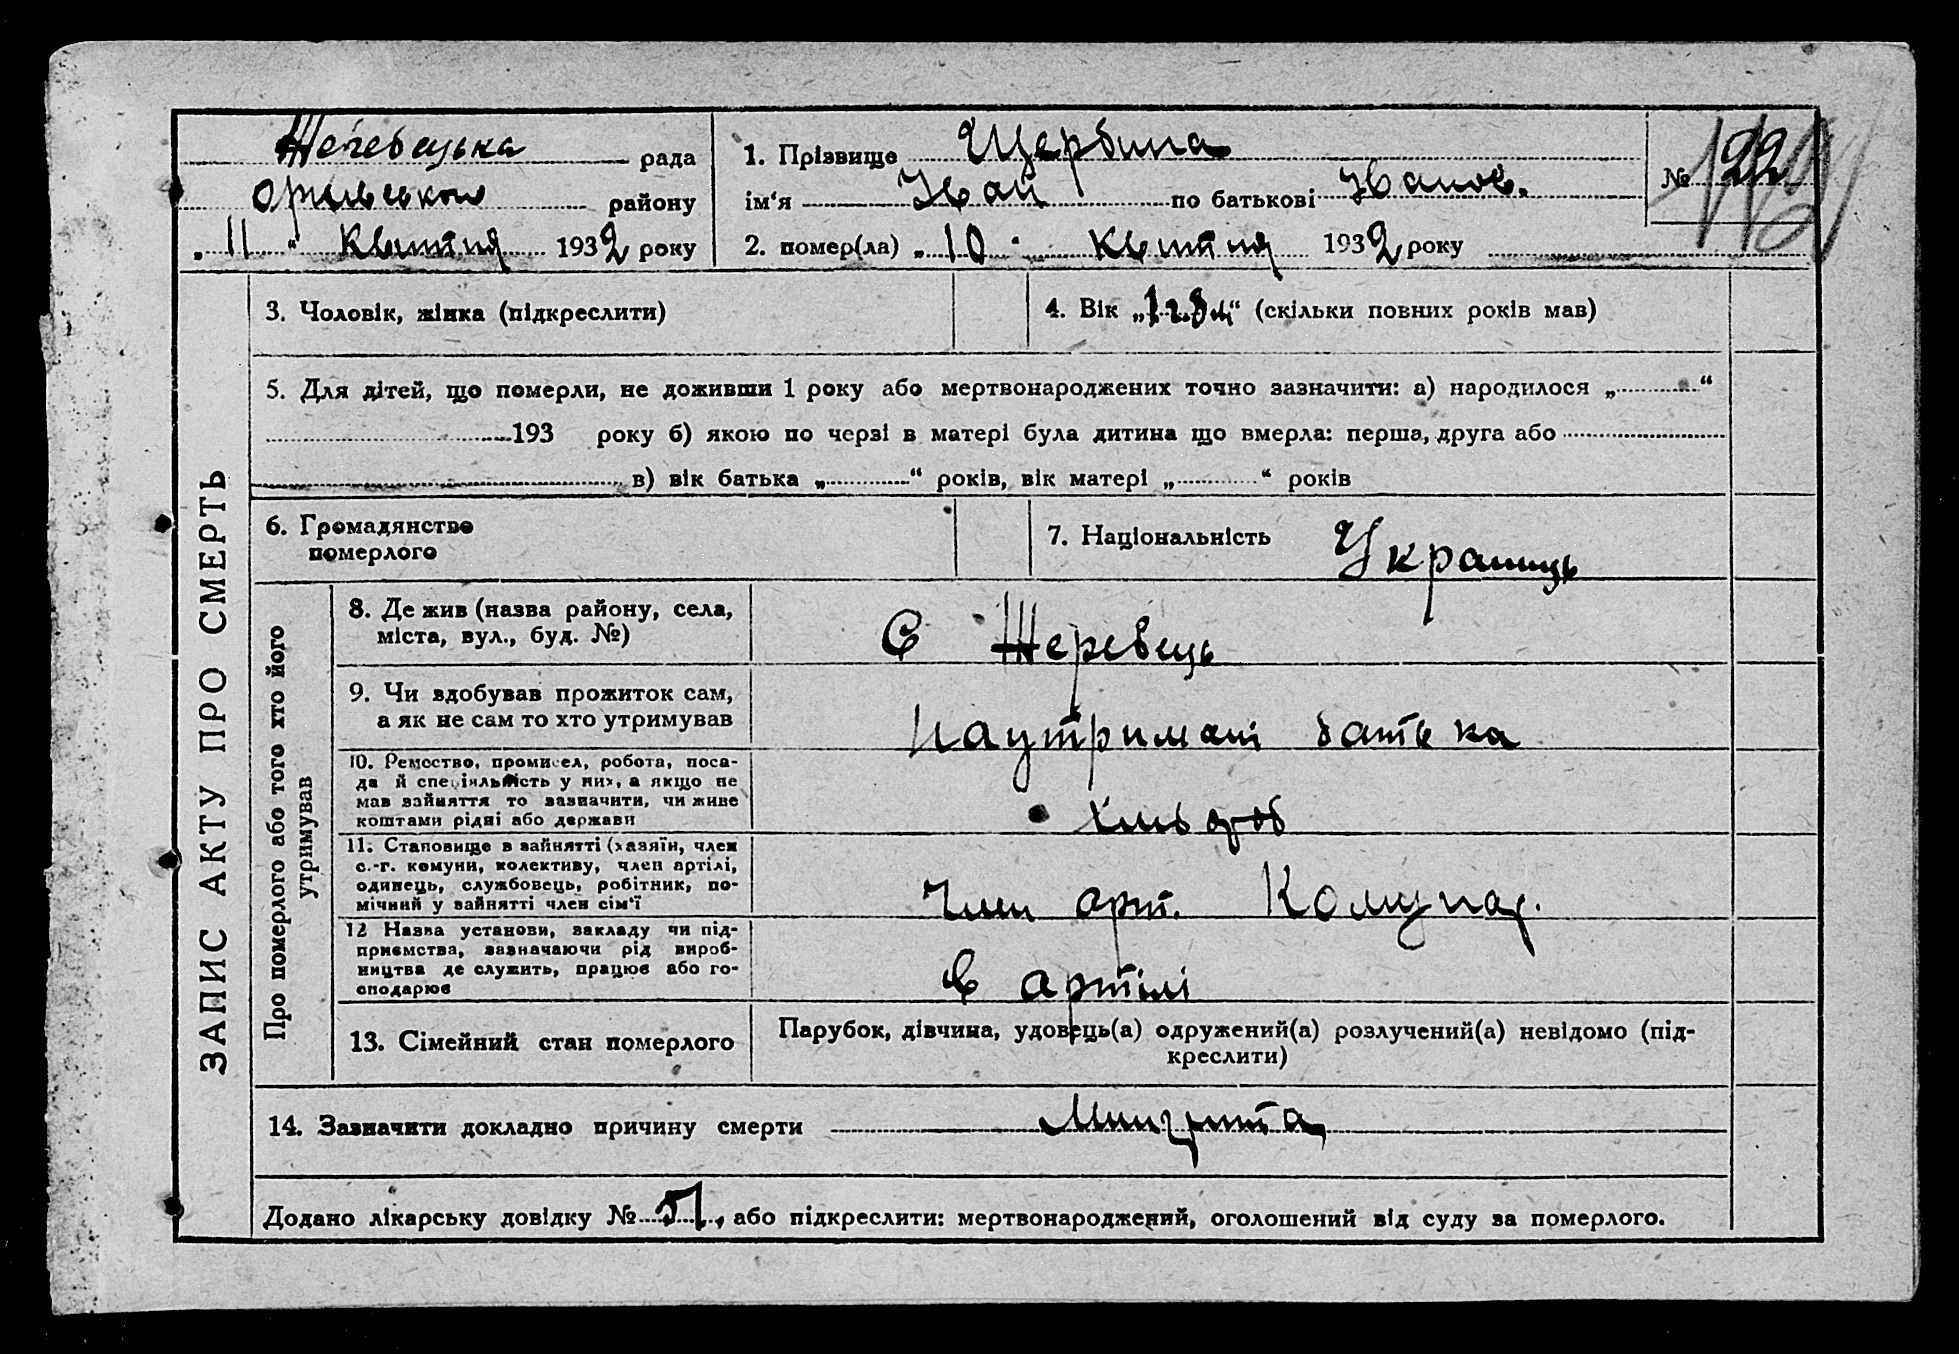 Жеребецька рада
Оріхівського району
„11“ Квітня 1932 року
1. Прізвище Щербина
ім'я Іван по батькові Іванов.
2. помер(ла) „10" Квітня 1932 року
№ 22
ЗАПИС АКТУ ПРО СМЕРТЬ
3. Чоловік, жінка (підкреслити)
4. Вік „1 г 8 м“ (скільки повних років мав)
5. Для дітей, що померли, не доживши 1 року або мертвонароджених точно зазначити: а) народилося „ “
193 року б) якою по черзі в матері була дитина що вмерла: перша, друга або
в) вік батька „ “ років, вік матері „ “ років
6. Громадянство
померлого
7. Національність Українць
Про померлого або того хто його
утримував
8. Де жив (назва району, села,
міста, вул., буд. №)
С Жеребець
9. Чи здобував прожиток сам,
а як не сам то хто утримував
На утримані батька
10. Ремество, промисел, робота, поса-
да й спеціяльність у них, а якщо не
мав зайняття то зазначити, чи живе
коштами рідні або держави
хлібороб
11. Становище в зайнятті (хазяїн, член
с.-г. комуни, колективу, член артілі,
одинець, службовець, робітник, по-
мічний у зайнятті член сім'ї
Член арт. Комунар.
12 Назва установи, закладу чи під-
приємства, зазначаючи рід вироб-
ництва де служить, працює або го-
сподарює
в артілі
13. Сімейний стан померлого
Парубок, дівчина, удовець(а) одружений(а) розлучений(а) невідомо (під-
креслити)
14. Зазначити докладно причину смерти
Додано лікарську довідку № 51, або підкреслити: мертвонароджений, оголошений від суду за померлого.